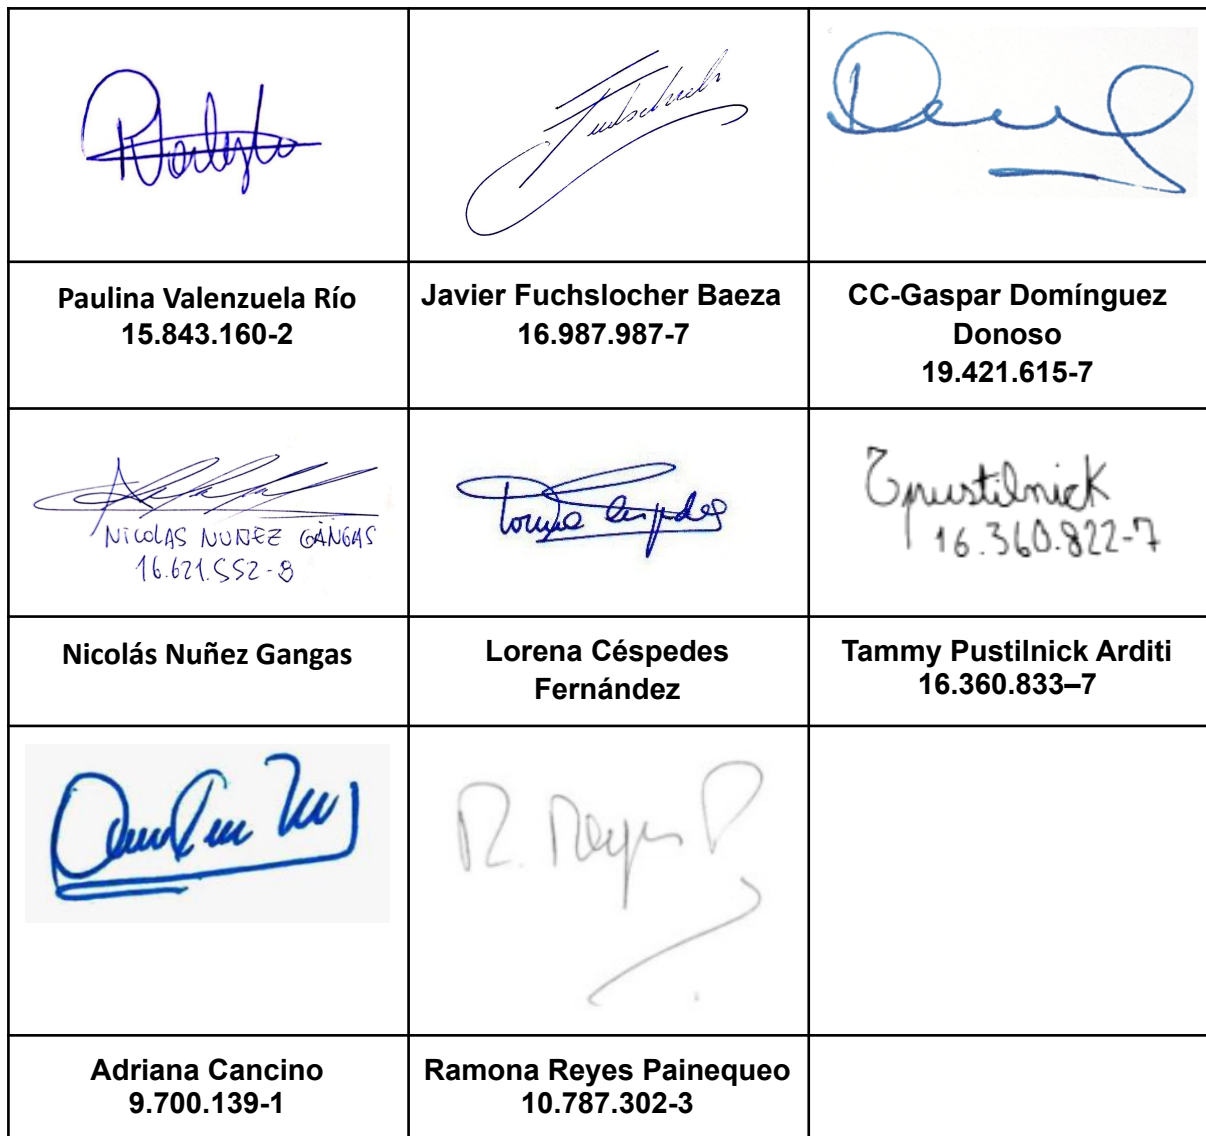 Paulina Valenzuela Río
15.843.160-2
Javier Fuchslocher Baeza
16.987.987-7
CC-Gaspar Domínguez
Donoso
19.421.615-7
NICOLAS NUÑEZ GANGAS
16.621.552-8
Lorena Céspedes
Tpustilnick
16.360.822-7
Nicolás Nuñez Gangas
Lorena Céspedes
Fernández
Tammy Pustilnick Arditi
16.360.833–7
R. Reyes P
Adriana Cancino
9.700.139-1
Ramona Reyes Painequeo
10.787.302-3